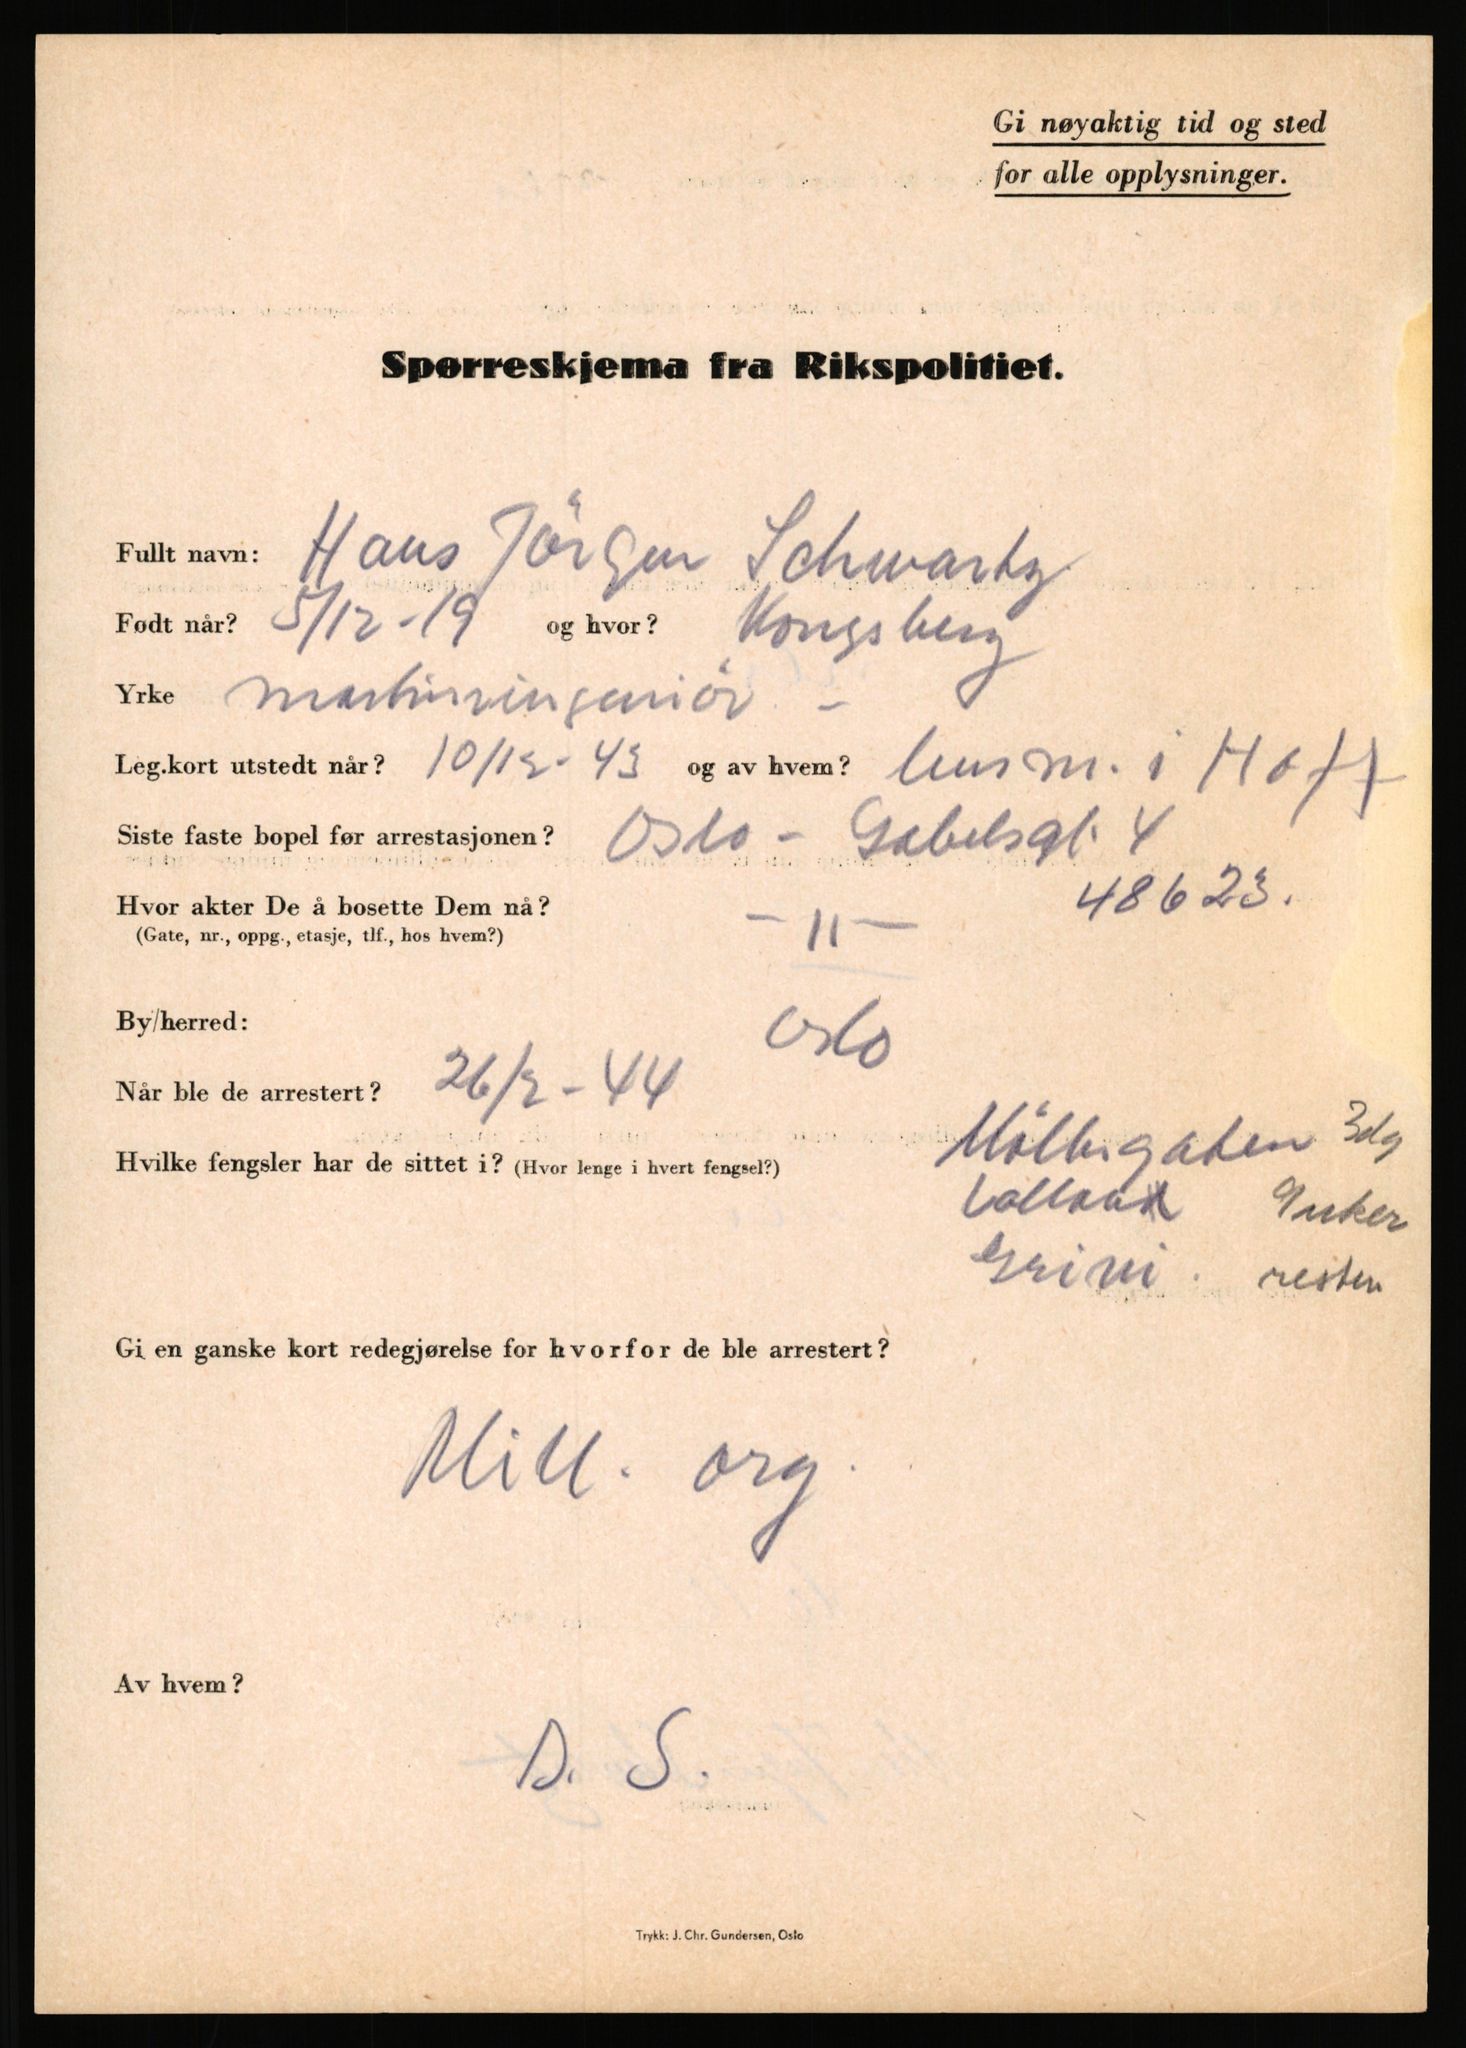 Gi nøyaktig tid og sted
for alle opplysninger.
Spørreskjema fra Rikspolitiet.
Fullt navn: Hans Jörgen Schwartz
Født når? 5/12-19 og hvor? Kongsberg
Yrke maskiningeniör -
Leg.kort utstedt når? 10/12-43 og av hvem? lensm. i Hoff
Siste faste bopel før arrestasjonen? Oslo - Gabelsgt. 4
48623.
Hvor akter De å bosette Dem nå? - 11 -
(Gate, nr., oppg., etasje, tlf., hos hvem?)
By/herred: Oslo
Når ble de arrestert? 26/2-44
Hvilke fengsler har de sittet i? (Hvor lenge i hvert fengsel?) Möllergaten 3dg
9 uker
Grini. resten
Gi en ganske kort redegjørelse for hvorfor de ble arrestert?
Mill. org.
Av hvem?
D. S.
Trykk: J. Chr. Gundersen, Oslo